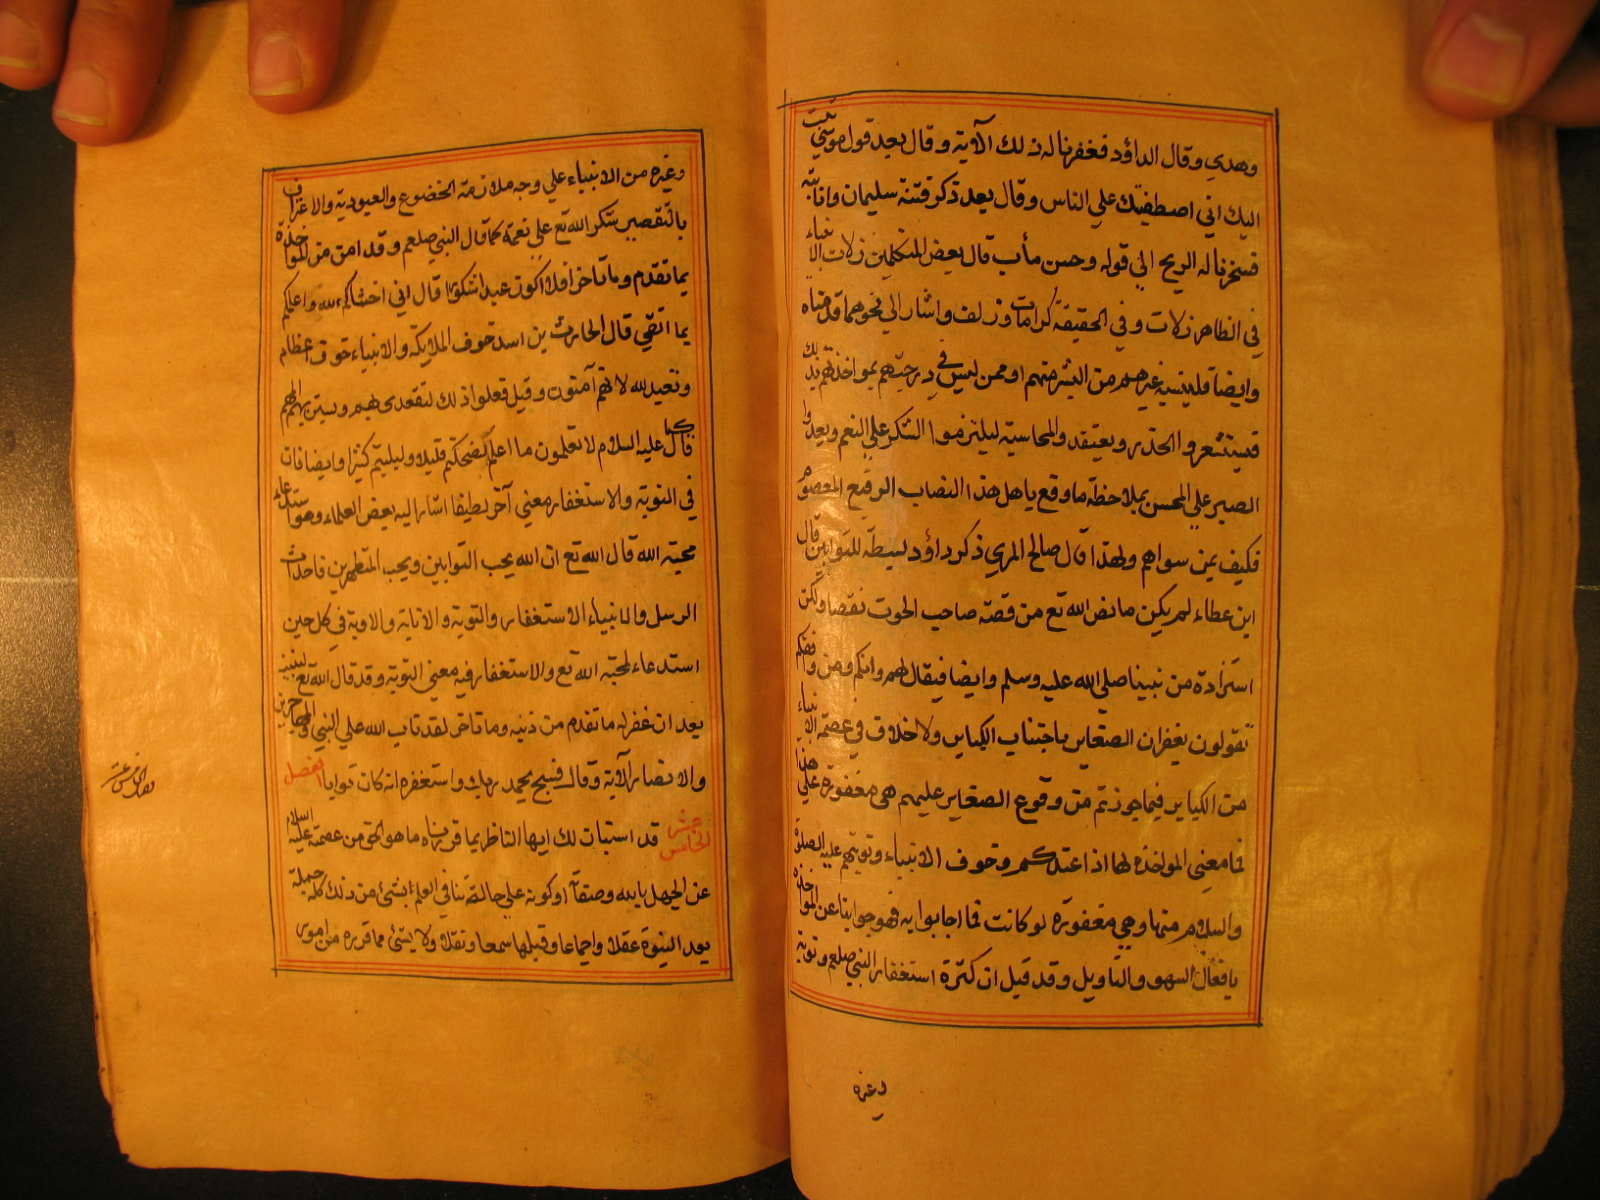 وهدي وقال الداؤد فغفرنا له ذلك الآية وقال بعد قول موسي تبت
اليك اني اصطفيتك علي الناس وقال بعد ذكر فتنة سليمان وانابته
فسخرنا له الريح الي قوله وحسن مأب قال بعض المتكلمين زلات الانبياء
في الظاهر زلات وفي الحقيقة كرامات وزلف واشار الي نحو مما قدمناه
وايضا فلينبه غيرهم من البشر منهم او ممن ليس في درجتهم بمواخذتهم بذلك
فيستشعروا الحذر ويعتقد والمحاسبة ليلتزموا الشكر علي النعم ويعدوا
الصبر علي المحسن بملاحظة ما وقع باهل هذا النصاب الرفيع المعصوم
فكيف بمن سواهم ولهذا قال صالح المري ذكر داؤد بسيطة للتوابين قال
ابن عطاء لم يكن ما نص الله تع من قصة صاحب الحوت نقصا ولكن
استزادة من نبينا صلي الله عليه وسلم وايضا فيقال لهم وانكم ومن وفقكم
تقولون بغفران الصغاير باجتناب الكباير ولا خلاف في عصمة الانبياء
من الكباير فيما جوزتم من وقوع الصغاير عليهم هي مغفورة علي هذا
فما معني المواخذة لها اذا عندكم وخوف الانبياء وتوبتهم عليه الصلوة
والسلام منها وهي مغفورة لو كانت فما اجابوا به فهو جوابنا عن المواخذة
بافعال السهو والتاويل وقد قيل ان كثرة استغفار النبي صلعم وتوبة
وغيره
وغيره من الانبياء علي وجه ملازمة الخضوع والعبودية والاعتراف
بالتقصير شكر الله تع علي نعمة كما قال النبي صلعم وقد امن من المواخذة
بما تقدم وما تاخر افلا اكون عبدا شكورا قال اني اخشاكم الله واعلمكم
بما اتقي قال الحارث بن اسد خوف الملايكة والانبياء خوف اعظام
وتعبد لله لانهم آمنون وقيل فعلوا ذلك لتقعدي بهم ويستن بهم اممهم
كما قال عليه السلام لا تعلمون ما اعلم لضحكتم قليلا ولبكيتم كثيرا وايضا فان
في التوبة والاستغفار معني آخر لطيفا اشار اليه بعض العلماء وهو استدعاء
محبة الله قال الله تع ان الله يحب التوابين ويحب المتطهرين فاحداث
الرسل والانبياء الاستغفار والتوبة والانابة والاوبة في كل حين
استدعاء لمحبة الله تع والاستغفار فيه معني التوبة وقد قال الله تع لنبيه
بعد ان غفر له ما تقدم من ذنبه وما تاخر لقد تاب الله علي النبي والمهاجرين
والانصار الآية وقال فسبح بحمد ربك واستغفره انه كان توابا الفصل
الخامس عشر قد استبان لك ايها الناظر بما قررناه ما هو الحق من عصمته عليه السلام
عن الجهل بالله وصفاته او كونه علي حالة تنافي العلم بشئ من ذلك كله جملة
بعد النبوة عقلا واجماعا وقبلها سمعا ونقلا ولا بشئ مما قرره من امور